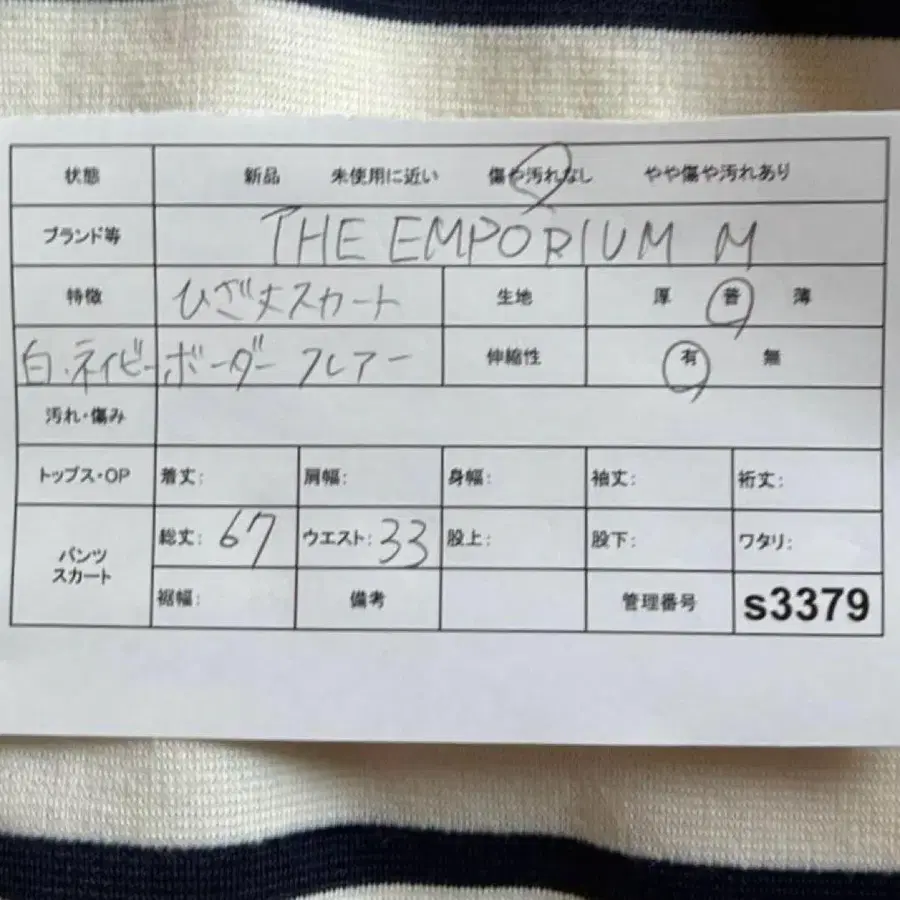 状態 新品 未使用に近い 傷や汚れなし やや傷や汚れあり
ブランド等 THE EMPORIUM M
特徴 ひざ丈スカート 生地 厚 普 薄
白・ネイビーボーダー フレアー 伸縮性 有 無
汚れ・傷み
トップス・OP 着丈: 肩幅: 身幅: 袖丈: 裄丈:
パンツ スカート 総丈: 67 ウエスト: 33 股上: 股下: ワタリ:
裾幅: 備考 管理番号 s3379